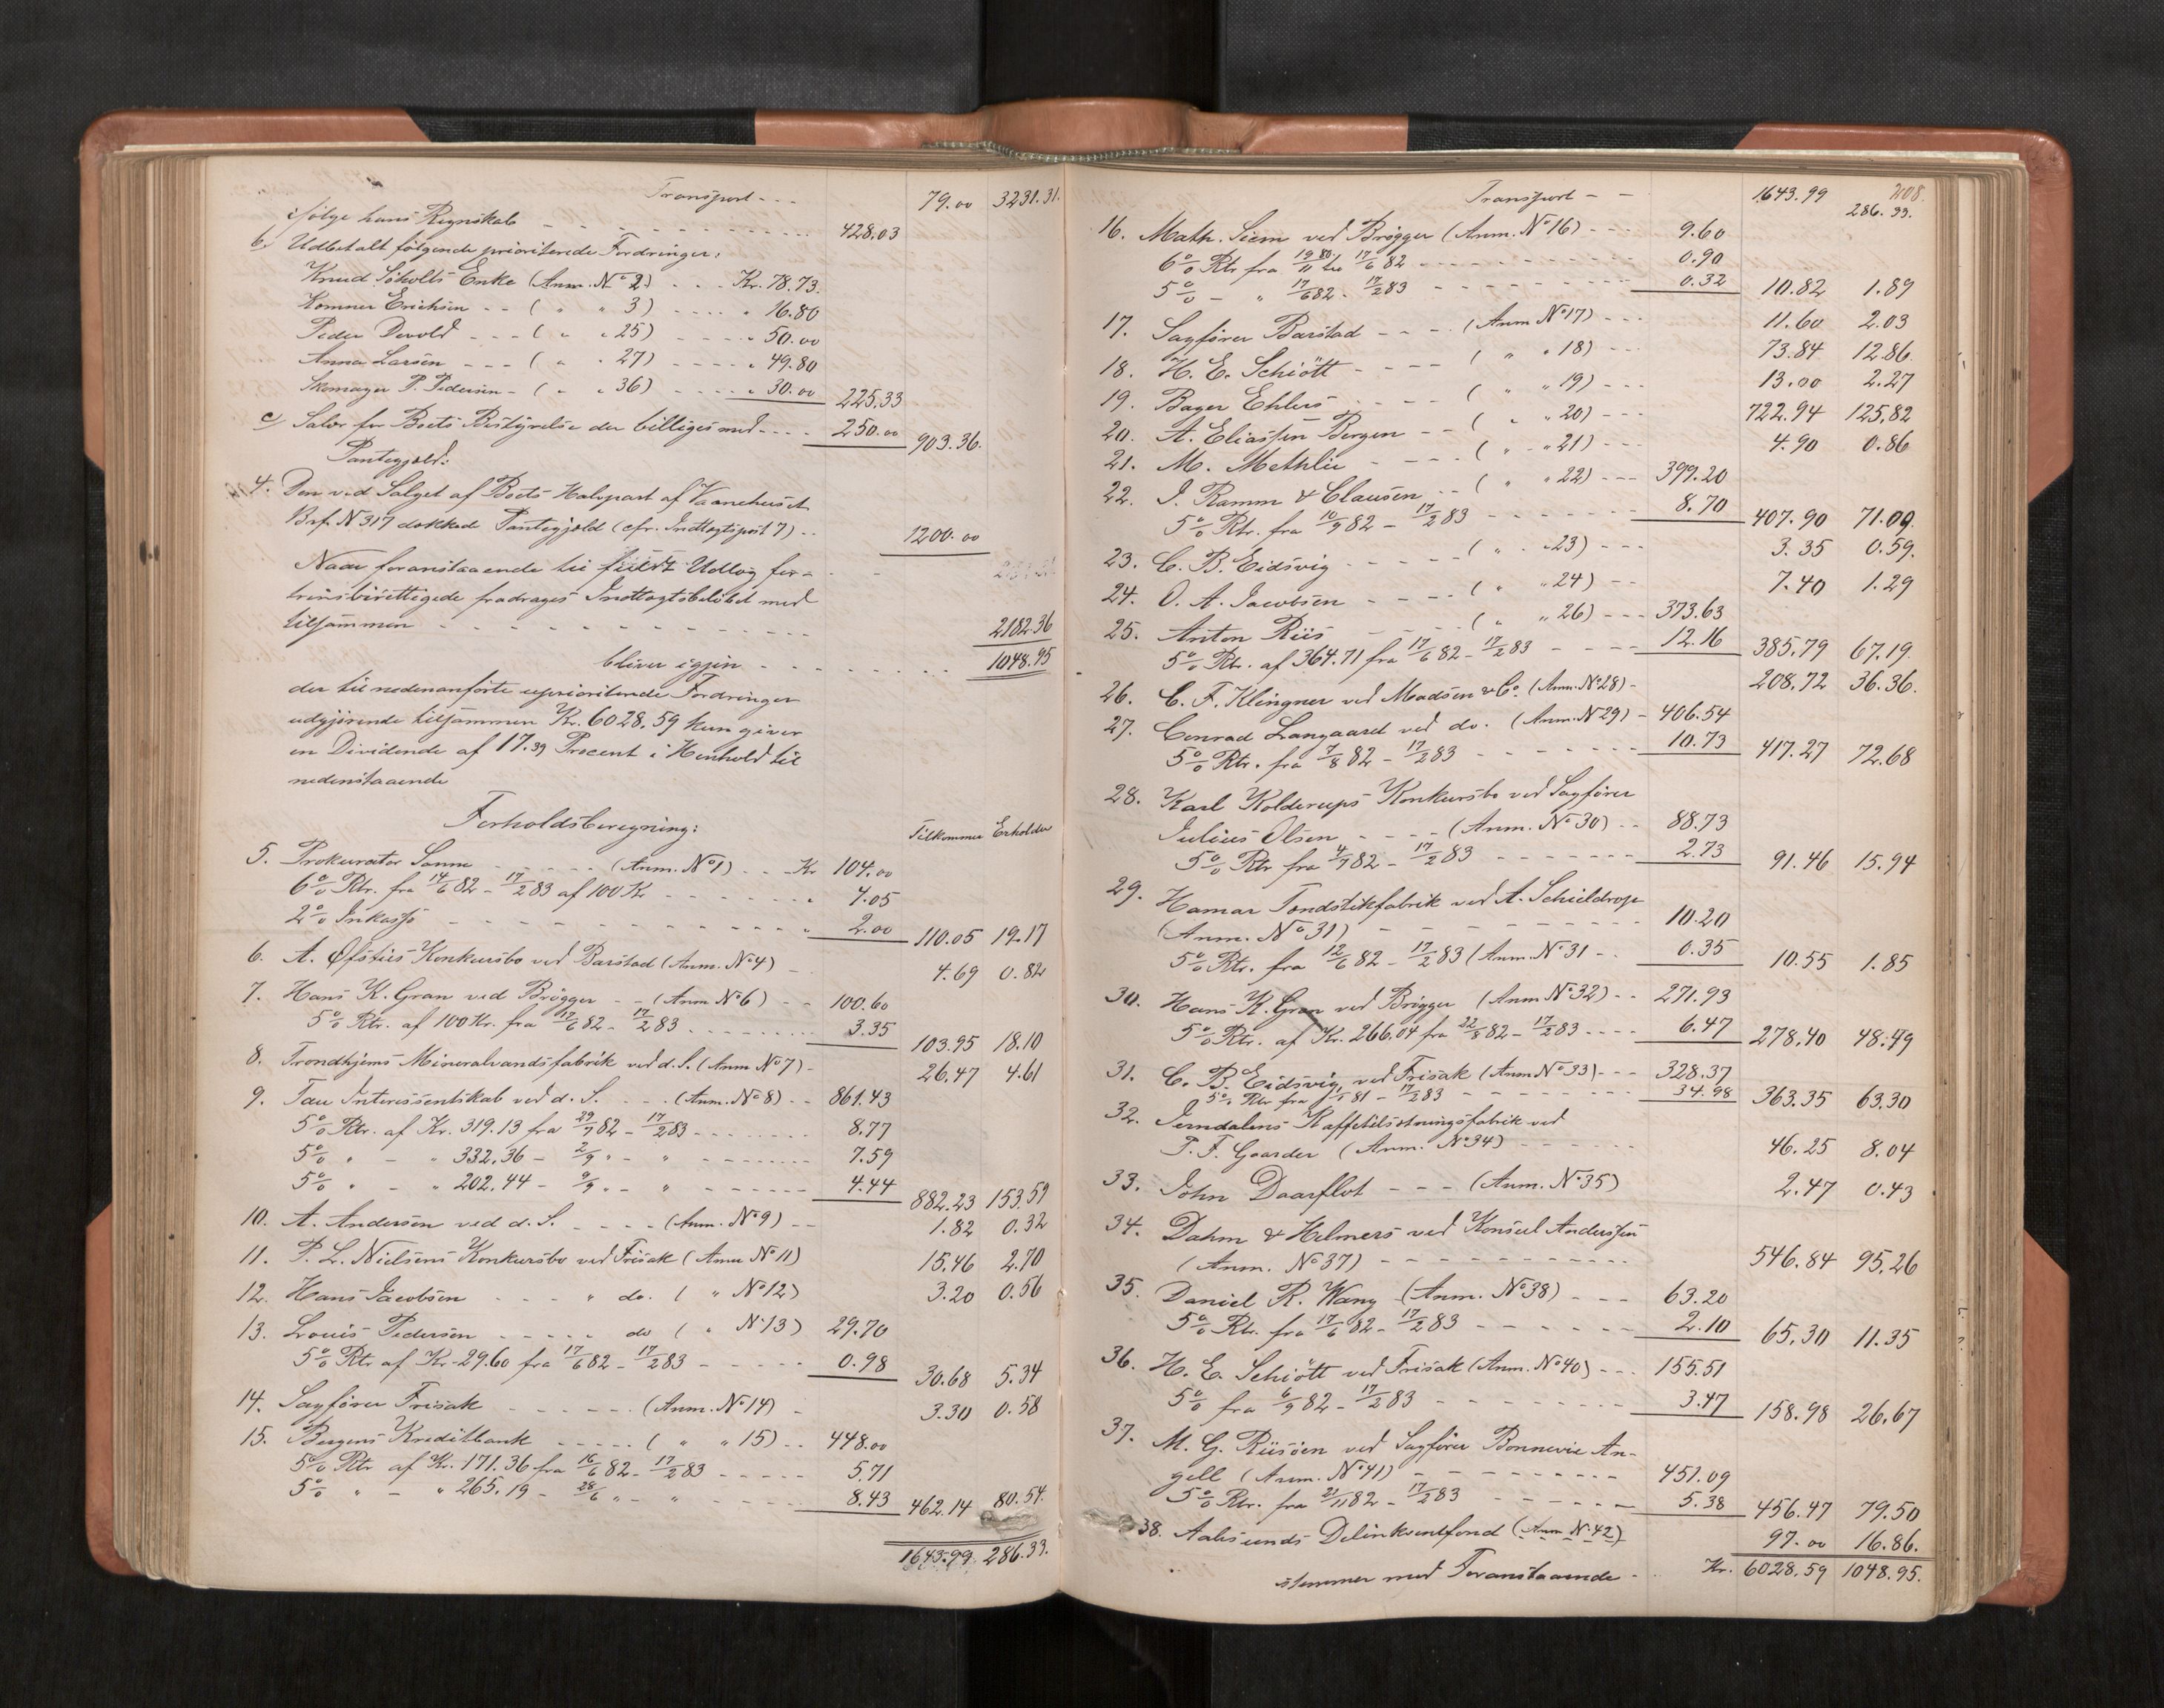 Transport - - - 79.00 3231.31.
ifølge hans Regnskab - - - - - 428.03
b. Udbetalt følgende prioriterede Fordringer:
Knud Søholts Enke (Anm. No 2) - - - Kr. 78.73.
Komner Erichsen - - ( " " 3) - - - - " 16.80
Peder Devold - - - ( " " 25) - - - - " 50.00
Anna Larsen - - - ( " " 27) - - - - " 49.80
Skomager P. Pedersen - ( " " 36) - - - - " 30.00 225.33
c) Salær for Boets Bestyrelse der billiges med - - - - 250.00 903.36.
Pantegjæld:
4. Den ved Salget af Boets Halvpart af Vaanehuset
Brf. N 317 dækkede Pantegjæld (cfr. Indtægtspost 7) - - 1200.00
Naar foranstaaende til fuldt Udlæg for-
trinsberettigede fradrages Indtægtsbeløbet med
tilsammen - - - - - - - 2182.36
bliver igjen - - - - 1048.95
der til nedenanførte uprioriterede Fordringer
udgjørende tilsammen Kr. 6028.59 kun giver
en Dividende af 17.39 Procent i Henhold til
nedenstaaende
Forholdsberegning: Tilkommer Erholder
5. Prokurator Sanne - - - - - (Anm. No 1) - - Kr 104.00
6% Rtr. fra 14/6 82 - 17/2 83 af 100 Kr - - - - - " 4.05
2% Inkasso - - - - - - - - - " 2.00 110.05 19.17
6. A. Øfstiès Konkursbo ved Barstad (Anm. No 4) - 4.69 0.82
7. Hans K. Gran ved Brøgger - - (Anm No 6) - - 100.60
5% Rtr. af 100 Kr. fra 17/6 82 - 17/2 83 - - - - - 3.35 103.95 18.10
8. Trondhjems Mineralvandsfabrik ved d. S. (Anm No 7) - 26.47 4.61
9. Tau Interessentskab ved d. S. - - - (Anm. No 8) - - 861.43
5% Rtr. af Kr. 319.13 fra 29/7 82 - 17/2 83 - - - - 8.77
5% " - " 332.36 - 2/9 " - " - - - - - 7.59
5% " - " 202.44 - 9/9 " - " - - - - - 4.44 882.23 153.59
10. A. Andersen ved d. S. - - - - (Anm. No 9) - - 1.82 0.32
11. P. L. Nielsens Konkursbo ved Frisak (Anm No 11) 15.46 2.70
12. Hans Jacobsen - - - " do. ( " No 12) 3.20 0.56
13. Louis Pedersen - - - - " do ( " No 13) 29.70
5% Rtr af Kr. 29.60 fra 17/6 82 - 17/2 83 - - - - 0.98 30.68 5.34
14. Sagfører Frisak - - - - - (Anm. No 14) - 3.30 0.58
15. Bergens Kreditbank - - - - - ( " " 15) - - 448.00
5% Rtr af Kr. 171.36 fra 16/6 82 - 17/2 83 - - - - 5.71
5% " - " 265.19 - 28/6 " - " - - - - 8.43 462.14 80.54.
1643.99 286.33.
208.
Transport - - 1643.99 286.33.
16. Math. Siem ved Brøgger (Anm. No 16) - - - 9.60
6% Rtr fra 19/11 80 til 17/6 82 - - - - - - 0.90
5% - " 17/6 82 - 17/2 83 - - - - - - - 0.32 10.82 1.89
17. Sagfører Barstad - - - (Anm No 17) - - - 11.60 2.03
18. H. E. Schiøtt - - - - ( " " 18) - - - 73.84 12.86
19. Bager Ehlers - - - - ( " " 19) - - - 13.00 2.27
20. A. Eliassen Bergen - - ( " " 20) - - - 722.94 125.82
21. M. Methlie - - - - ( " " 21) - - - 4.90 0.86
22. J. Ramm & Clausen - - ( " " 22) - - - 399.20
5% Rtr. fra 10/9 82 - 17/2 83 - - - - - 8.70 407.90 71.09.
23. C. B. Eidsvig - - - - - ( " " 23) - - - 3.35 0.59.
24. O. A. Jacobsen - - - - ( " " 24) - - 7.40 1.29
25. Anton Riis - - - - - ( " " 26) - - - 373.63
5% Rtr. af 364.71 fra 17/6 82 - 17/2 83 - - - - 12.16 385.79 67.19.
26. C. F. Klingner ved Madsen & Co. (Anm. No 28) - 208.72 36.36.
27. Conrad Langaard ved do. (Anm. No 29) - 406.54
5% Rtr. fra 7/8 82 - 17/2 83 - - - - - 10.73 417.27 72.68
28. Karl Kolderups Konkursbo ved Sagfører
Julius Olsen - - - - (Anm. No 30) - - 88.73
5% Rtr fra 4/7 82 - 17/2 83 - - - - - - 2.73 91.46 15.94
29. Hamar Tændstikfabrik ved A. Schieldrop
(Anm. No 31) - - - - - - - - 10.20
5% Rtr. fra 12/6 82 - 17/2 83 (Anm. No 31 - - 0.35 10.55 1.85
30. Hans K. Gran ved Brøgger (Anm No 32) - - 271.93
5% Rtr. af Kr. 266.04 fra 22/8 82 - 17/2 83 - - - - 6.47 278.40 48.49
31. C. B. Eidsvig, ved Frisak (Anm No 33) - - - 328.37
5% Rtr fra 1/1 81 - 17/2 83 - - - - - - - 34.98 363.35 63.30
32. Jerndalens Kaffetilsætningsfabrik ved
P. F. Gaarder (Anm. No 34) - - - - - 46.25 8.04
33. John Daarflot - - - (Anm. No 35) 2.47 0.43
34. Dahm & Helmers ved Konsul Anderssen
(Anm. No 37) - - - - - - - - 546.84 95.26
35. Daniel R. Wang (Anm. No 38) - - - 63.20
5% Rtr. fra 17/6 82 - 17/2 83 - - - - - 2.10 65.30 11.35
36. H. E. Schiøtt ved Frisak (Anm. No 40) - - - 155.51
5% fra 6/9 82 - 17/2 83 - - - - - - 3.47 158.98 26.67
37. M. G. Riisøen ved Sagfører Bonnevie An-
gell (Anm. No 41) - - - - - - - - 451.09
5% Rtr. fra 21/11 82 - 17/2 83 - - - - - - 5.38 456.47 79.50
38. Aalesunds Delinkventfond (Anm No 42) 97.00 16.86.
stemmer med Foranstaaende - Kr. 6028.59 1048.95.